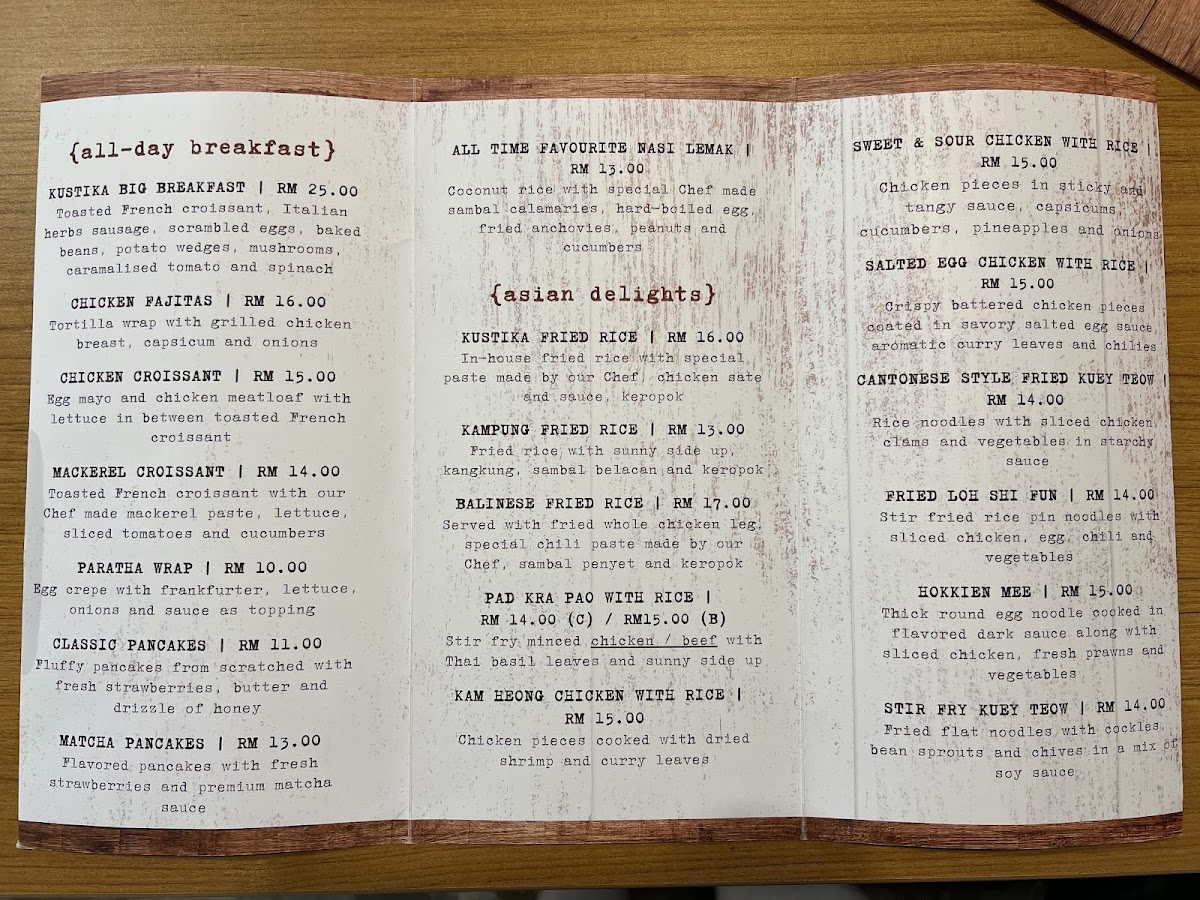 {all-day breakfast}
KUSTIKA BIG BREAKFAST | RM 25.00
Toasted French croissant, Italian
herbs sausage, scrambled eggs, baked
beans, potato wedges, mushrooms,
caramalised tomato and spinach
CHICKEN FAJITAS | RM 16.00
Tortilla wrap with grilled chicken
breast, capsicum and onions
CHICKEN CROISSANT | RM 15.00
Egg mayo and chicken meatloaf with
lettuce in between toasted French
croissant
MACKEREL CROISSANT | RM 14.00
Toasted French croissant with our
Chef made mackerel paste, lettuce,
sliced tomatoes and cucumbers
PARATHA WRAP | RM 10.00
Egg crepe with frankfurter, lettuce,
onions and sauce as topping
CLASSIC PANCAKES | RM 11.00
Fluffy pancakes from scratched with
fresh strawberries, butter and
drizzle of honey
MATCHA PANCAKES | RM 13.00
Flavored pancakes with fresh
strawberries and premium matcha
sauce
ALL TIME FAVOURITE NASI LEMAK |
RM 13.00
Coconut rice with special Chef made
sambal calamaries, hard-boiled egg,
fried anchovies, peanuts and
cucumbers
{asian delights}
KUSTIKA FRIED RICE | RM 16.00
In-house fried rice with special
paste made by our Chef, chicken sate
and sauce, keropok
KAMPUNG FRIED RICE | RM 13.00
Fried rice with sunny side up,
kangkung, sambal belacan and keropok
BALINESE FRIED RICE | RM 17.00
Served with fried whole chicken leg,
special chili paste made by our
Chef, sambal penyet and keropok
PAD KRA PAO WITH RICE |
RM 14.00 (C) / RM15.00 (B)
Stir fry minced chicken / beef with
Thai basil leaves and sunny side up
KAM HEONG CHICKEN WITH RICE |
RM 15.00
Chicken pieces cooked with dried
shrimp and curry leaves
SWEET & SOUR CHICKEN WITH RICE |
RM 15.00
Chicken pieces in sticky and
tangy sauce, capsicums,
cucumbers, pineapples and onions
SALTED EGG CHICKEN WITH RICE |
RM 15.00
Crispy battered chicken pieces
coated in savory salted egg sauce,
aromatic curry leaves and chilies
CANTONESE STYLE FRIED KUEY TEOW |
RM 14.00
Rice noodles with sliced chicken,
clams and vegetables in starchy
sauce
FRIED LOH SHI FUN | RM 14.00
Stir fried rice pin noodles with
sliced chicken, egg, chili and
vegetables
HOKKIEN MEE | RM 15.00
Thick round egg noodle cooked in
flavored dark sauce along with
sliced chicken, fresh prawns and
vegetables
STIR FRY KUEY TEOW | RM 14.00
Fried flat noodles with cockles,
bean sprouts and chives in a mix of
soy sauce